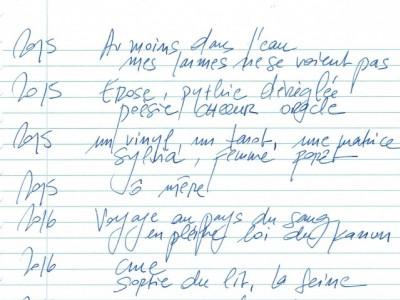 2015 Au moins dans l'eau
mes larmes ne se voient pas
2015 Erose, pythie déréglée
poésie, chœur oracle
2015 un vinyl, un tarot, une matrice
Sylvia, femme poret
2015 ô mère
2016 Voyage au pays du sang
en pleine loi du kanun
2016 cure
sortie du lit, la Seine